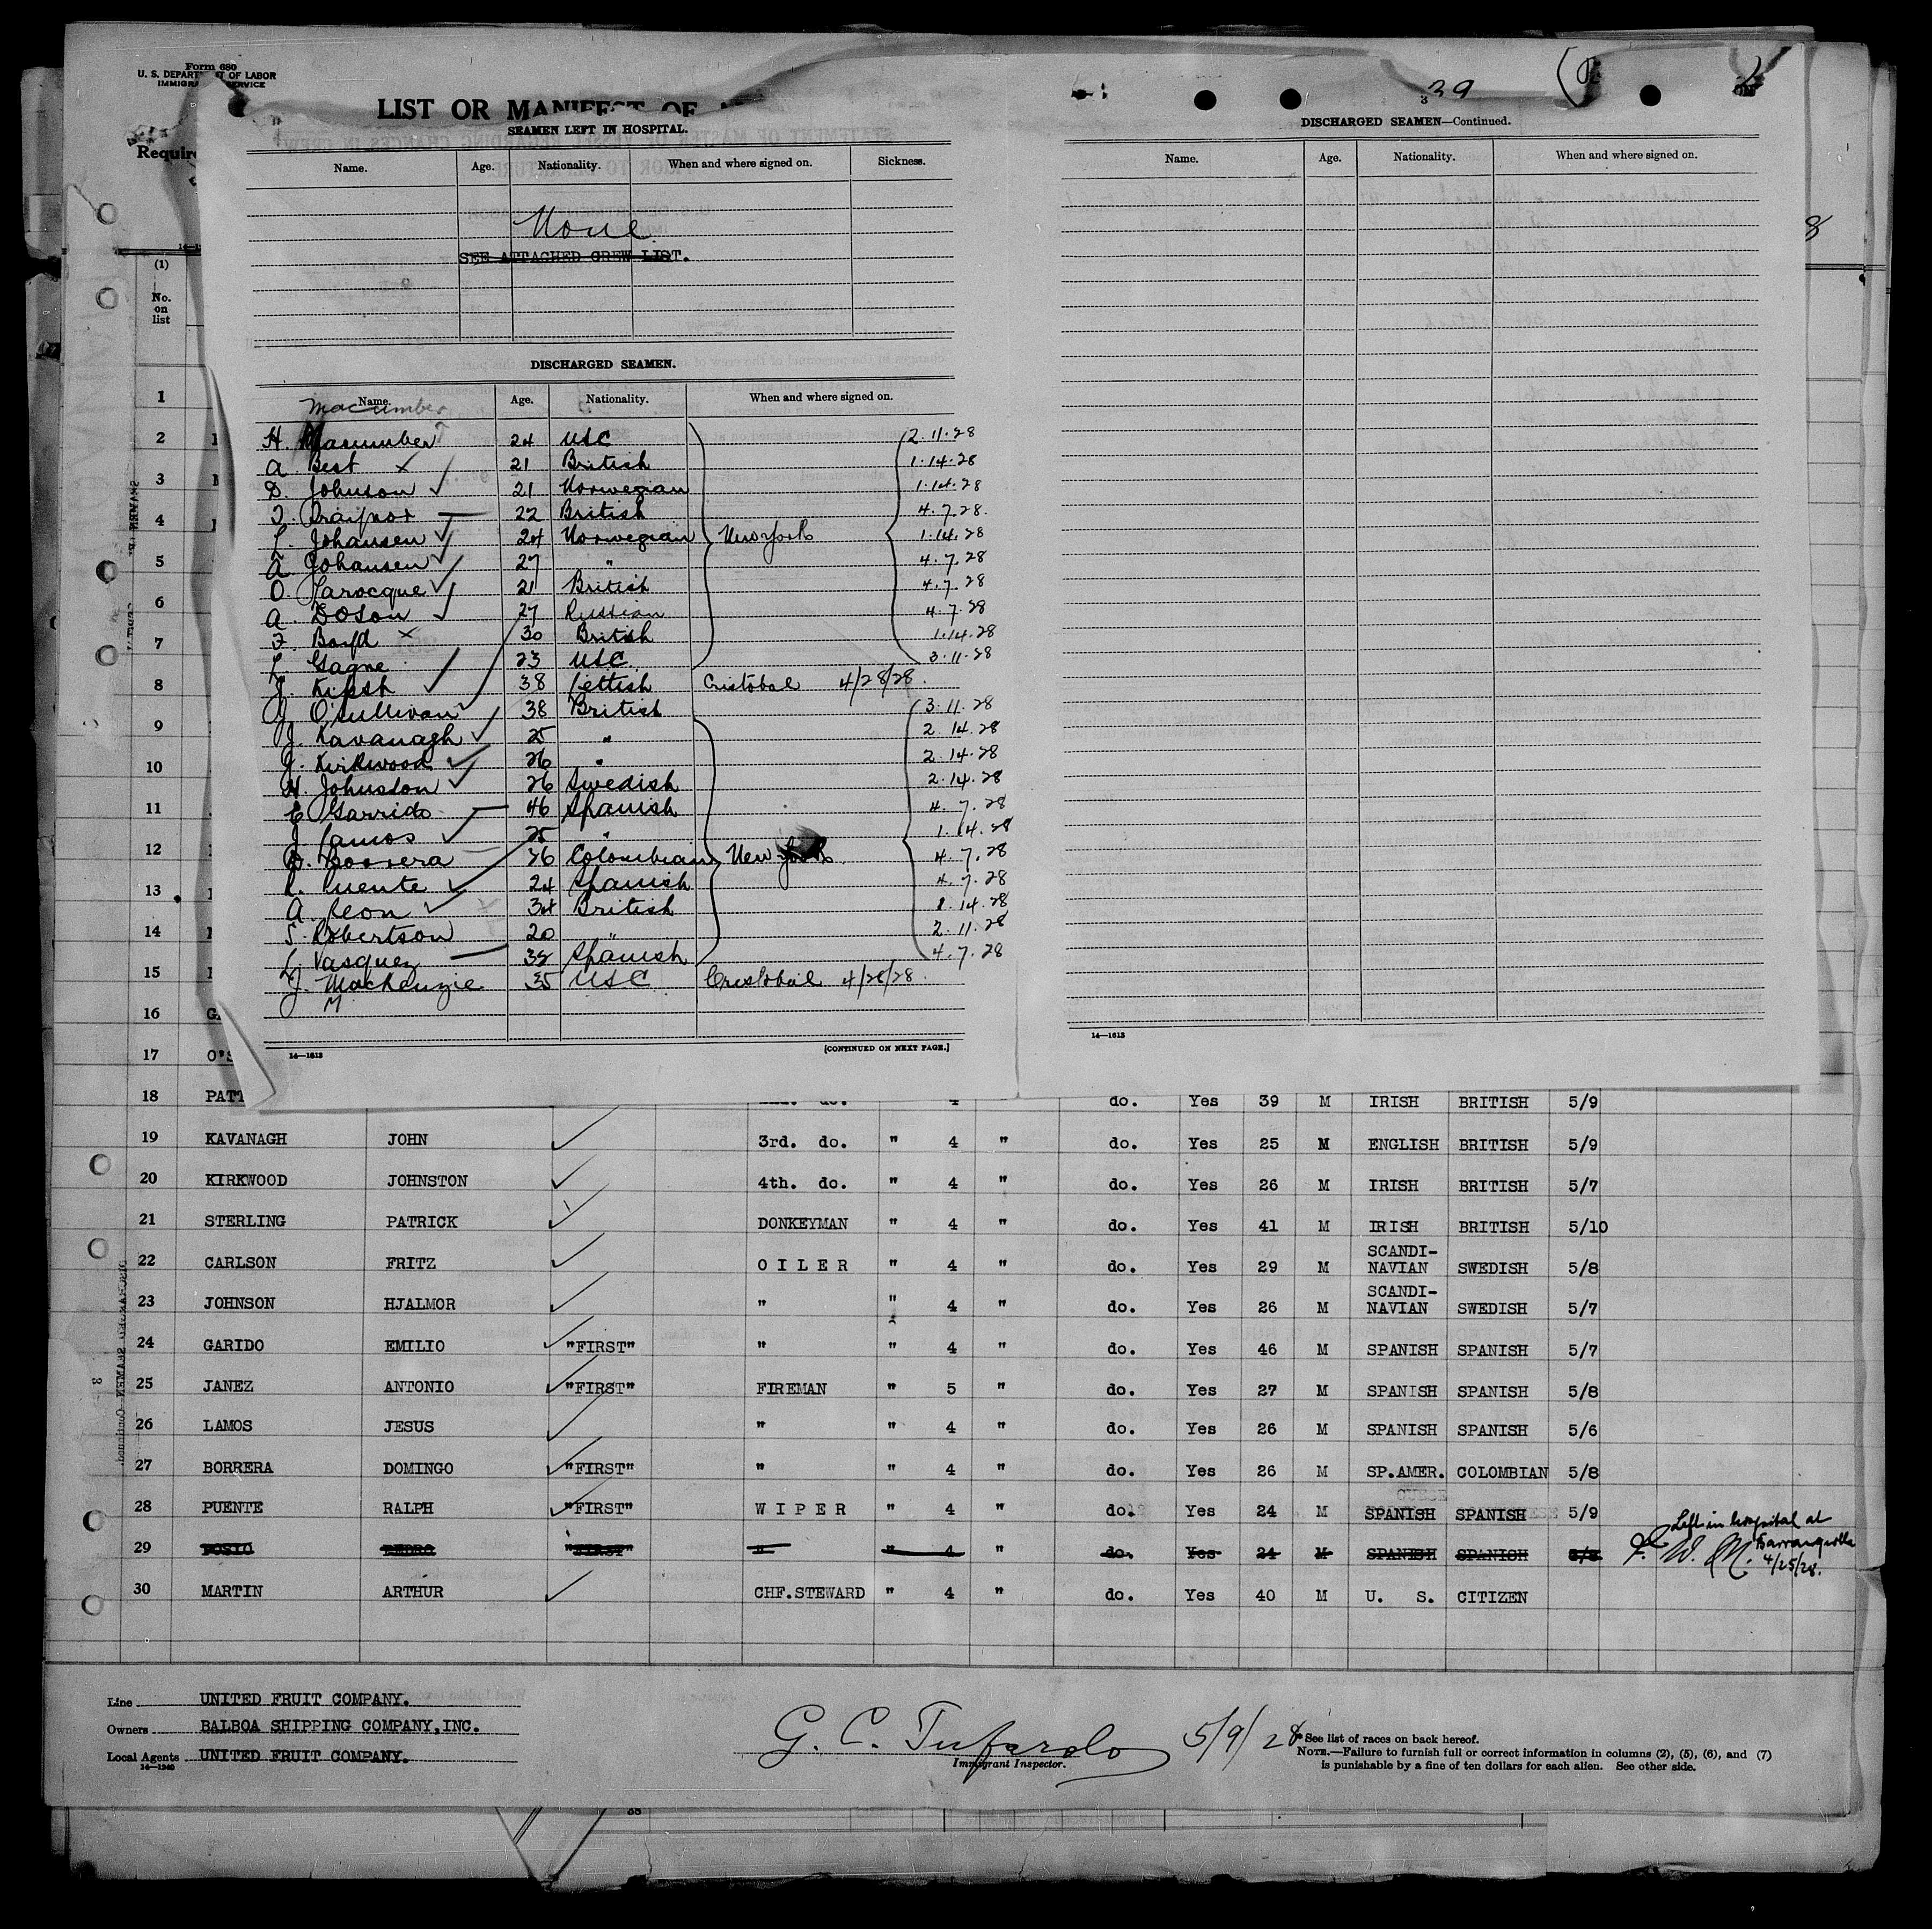 Form 680
U. S. DEPARTMENT OF LABOR
IMMIGRATION SERVICE
LIST OR MANIFEST OF
Require
(1)
No.
on
list
SEAMEN LEFT IN HOSPITAL.
Name. Age. Nationality. When and where signed on. Sickness.
None
SEE ATTACHED CREW LIST.
DISCHARGED SEAMEN.
Name. Age. Nationality. When and where signed on.
Macumber
H. Macumber 24 USC 2.11.28
A. Best x 21 British 1.14.28
D. Johnson ✓ 21 Norwegian 1.14.28
22 British 4.7.28.
L. Johansen ✓ 24 Norwegian New York 1.14.28
A. Johansen ✓ 27 " 4.7.28
O. Larocque ✓ 21 British 4.7.28
A. Doson ✓ 27 Russian 4.7.28
F. Boyd x 30 British 1.14.28
L. Gagne 23 USC 3.11.28
J. Kipsh ✓ 38 Lettish Cristobal 4/28/28.
J. O'Sullivan ✓ 38 British 3.11.28
J. Kavanagh ✓ 25 " 2.14.28
J. Kirkwood ✓ 26 " 2.14.28
H. Johnston ✓ 26 Swedish 2.14.28
E. Garrido 46 Spanish 4.7.28
J. Lamos ✓ 25 " 1.14.28
D. Borrera 26 Colombian New York 4.7.28
R. Puente ✓ 24 Spanish 4.7.28
A. Leon ✓ 34 British 1.14.28
S. Robertson 20 " 2.11.28
L. Vasquez 32 Spanish 4.7.28
J. Mackenzie 35 USC Cristobal 4/28/28.
M
14—1613 [CONTINUED ON NEXT PAGE.]
39
3
DISCHARGED SEAMEN—Continued.
Name. Age. Nationality. When and where signed on.
14—1613
8
1
2
3
4
5
6
7
8
9
10
11
12
13
14
15
16 G
17 O'S
18 PATT 2nd. do. 4 do. Yes 39 M IRISH BRITISH 5/9
19 KAVANAGH JOHN ✓ 3rd. do. " 4 " do. Yes 25 M ENGLISH BRITISH 5/9
20 KIRKWOOD JOHNSTON ✓ 4th. do. " 4 " do. Yes 26 M IRISH BRITISH 5/7
21 STERLING PATRICK ✓ DONKEYMAN " 4 " do. Yes 41 M IRISH BRITISH 5/10
22 CARLSON FRITZ ✓ OILER " 4 " do. Yes 29 M SCANDI-NAVIAN SWEDISH 5/8
23 JOHNSON HJALMOR ✓ " " 4 " do. Yes 26 M SCANDI-NAVIAN SWEDISH 5/7
24 GARIDO EMILIO ✓ "FIRST" " " 4 " do. Yes 46 M SPANISH SPANISH 5/7
25 JANEZ ANTONIO ✓ "FIRST" FIREMAN " 5 " do. Yes 27 M SPANISH SPANISH 5/8
26 LAMOS JESUS ✓ " " 4 " do. Yes 26 M SPANISH SPANISH 5/6
27 BORRERA DOMINGO ✓ "FIRST" " " 4 " do. Yes 26 M SP.AMER. COLOMBIAN 5/8
28 PUENTE RALPH ✓ "FIRST" WIPER " 4 " do. Yes 24 M SPANISH SPANISH 5/9
29 PEDRO "FIRST" " " 4 " do. Yes 24 M SPANISH SPANISH Left in hospital at Barranquilla 4/25/28.
30 MARTIN ARTHUR ✓ CHF.STEWARD " 4 " do. Yes 40 M U. S. CITIZEN
Line UNITED FRUIT COMPANY.
Owners BALBOA SHIPPING COMPANY,INC.
Local Agents UNITED FRUIT COMPANY.
14—1240
G. C. Tufarolo 5/9/28
Immigrant Inspector.
* See list of races on back hereof.
NOTE.—Failure to furnish full or correct information in columns (2), (5), (6), and (7)
is punishable by a fine of ten dollars for each alien. See other side.